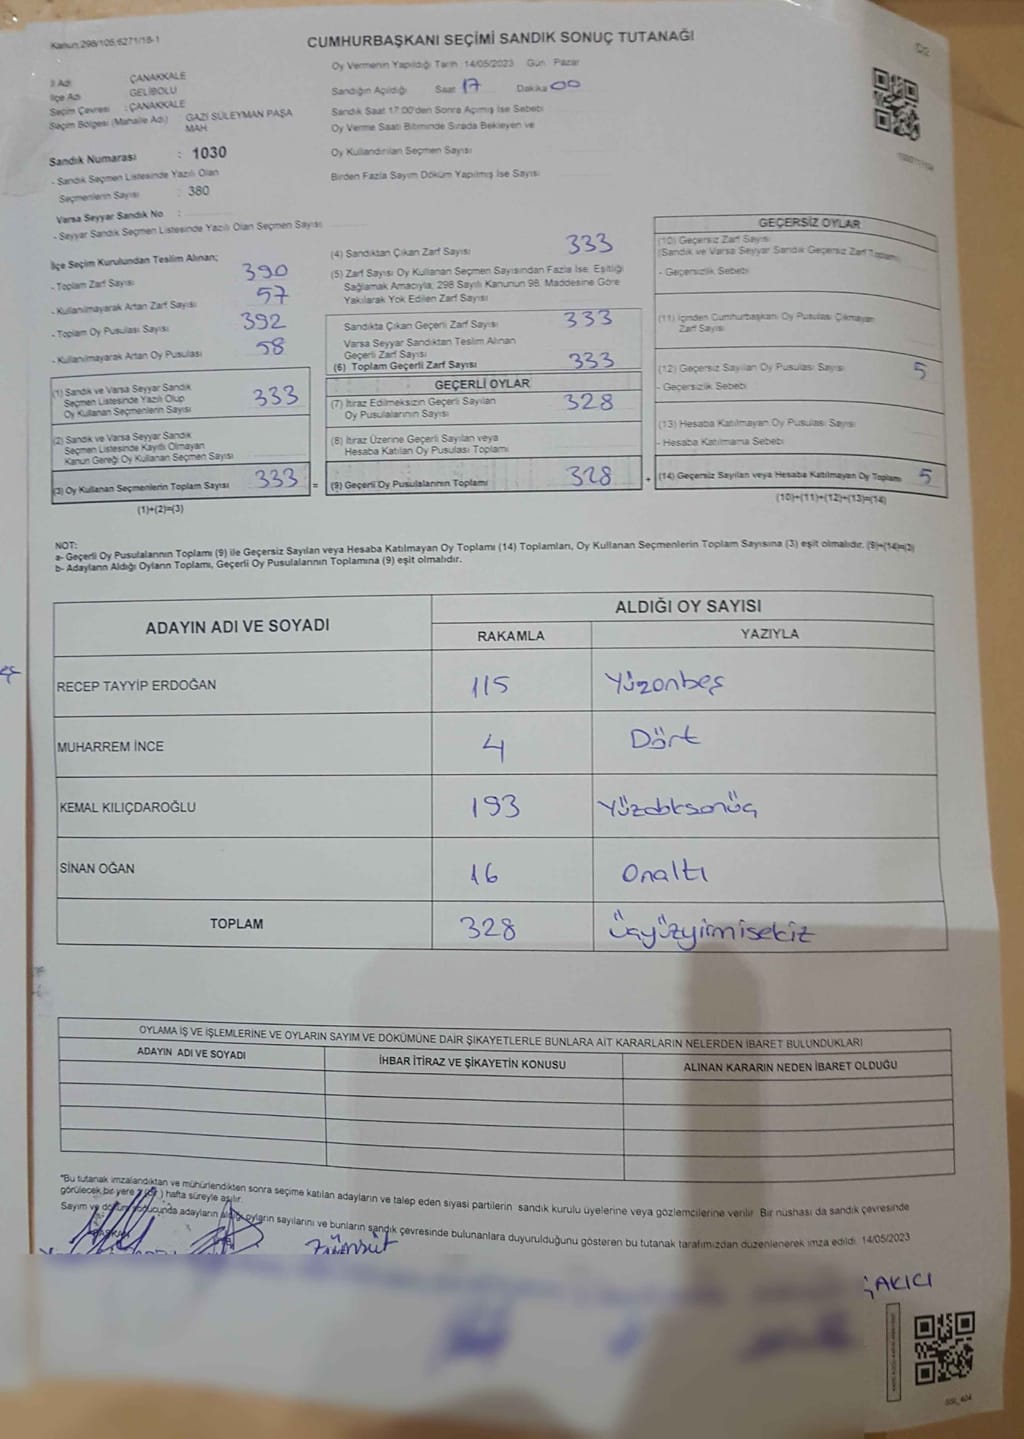 Kanun:298/105;6271/18-1
CUMHURBAŞKANI SEÇİMİ SANDIK SONUÇ TUTANAĞI
İl Adı ÇANAKKALE
İlçe Adı GELİBOLU
Seçim Çevresi : ÇANAKKALE
Seçim Bölgesi (Mahalle Adı) GAZİ SÜLEYMAN PAŞA
MAH
Sandık Numarası : 1030
- Sandık Seçmen Listesinde Yazılı Olan
Seçmenlerin Sayısı : 380
Varsa Seyyar Sandık No :
- Seyyar Sandık Seçmen Listesinde Yazılı Olan Seçmen Sayısı
Oy Vermenin Yapıldığı Tarih :14/05/2023 Gün Pazar
Sandığın Açıldığı Saat 17 Dakika 00
Sandık Saat 17:00'den Sonra Açımış İse Sebebi
Oy Verme Saati Bitiminde Sırada Bekleyen ve
Oy Kullandırılan Seçmen Sayısı
Birden Fazla Sayım Döküm Yapılmış İse Sayısı
İlçe Seçim Kurulundan Teslim Alınan;
- Toplam Zarf Sayısı 390
- Kullanılmayarak Artan Zarf Sayısı 57
- Toplam Oy Pusulası Sayısı 392
- Kullanılmayarak Artan Oy Pusulası 58
(1) Sandık ve Varsa Seyyar Sandık
Seçmen Listesinde Yazılı Olup
Oy Kullanan Seçmenlerin Sayısı 333
(2) Sandık ve Varsa Seyyar Sandık
Seçmen Listesinde Kayıtlı Olmayan
Kanun Gereği Oy Kullanan Seçmen Sayısı
(3) Oy Kullanan Seçmenlerin Toplam Sayısı 333 =
(1)+(2)=(3)
(4) Sandıktan Çıkan Zarf Sayısı 333
(5) Zarf Sayısı Oy Kullanan Seçmen Sayısından Fazla İse, Eşitliği
Sağlamak Amacıyla, 298 Sayılı Kanunun 98. Maddesine Göre
Yakılarak Yok Edilen Zarf Sayısı
Sandıkta Çıkan Geçerli Zarf Sayısı 333
Varsa Seyyar Sandıktan Teslim Alınan
Geçerli Zarf Sayısı
(6) Toplam Geçerli Zarf Sayısı 333
GEÇERLİ OYLAR
(7) İtiraz Edilmeksizin Geçerli Sayılan
Oy Pusulalarının Sayısı 328
(8) İtiraz Üzerine Geçerli Sayılan veya
Hesaba Katılan Oy Pusulası Toplamı
(9) Geçerli Oy Pusulalarının Toplamı 328 +
GEÇERSİZ OYLAR
(10) Geçersiz Zarf Sayısı
(Sandık ve Varsa Seyyar Sandık Geçersiz Zarf Toplamı)
- Geçersizlik Sebebi
(11) İçinden Cumhurbaşkanı Oy Pusulası Çıkmayan
Zarf Sayısı
(12) Geçersiz Sayılan Oy Pusulası Sayısı 5
- Geçersizlik Sebebi
(13) Hesaba Katılmayan Oy Pusulası Sayısı
- Hesaba Katılmama Sebebi
(14) Geçersiz Sayılan veya Hesaba Katılmayan Oy Toplamı 5
(10)+(11)+(12)+(13)=(14)
NOT:
a- Geçerli Oy Pusulalarının Toplamı (9) ile Geçersiz Sayılan veya Hesaba Katılmayan Oy Toplamı (14) Toplamları, Oy Kullanan Seçmenlerin Toplam Sayısına (3) eşit olmalıdır. (9)+(14)=(3)
b- Adayların Aldığı Oyların Toplamı, Geçerli Oy Pusulalarının Toplamına (9) eşit olmalıdır.
ADAYIN ADI VE SOYADI ALDIĞI OY SAYISI
RAKAMLA YAZIYLA
RECEP TAYYİP ERDOĞAN 115 Yüzonbeş
MUHARREM İNCE 4 Dört
KEMAL KILIÇDAROĞLU 193 Yüzdoksanüç
SİNAN OĞAN 16 Onaltı
TOPLAM 328 Üçyüzyirmisekiz
OYLAMA İŞ VE İŞLEMLERİNE VE OYLARIN SAYIM VE DÖKÜMÜNE DAİR ŞİKAYETLERLE BUNLARA AİT KARARLARIN NELERDEN İBARET BULUNDUKLARI
ADAYIN ADI VE SOYADI İHBAR İTİRAZ VE ŞİKAYETİN KONUSU ALINAN KARARIN NEDEN İBARET OLDUĞU
*Bu tutanak imzalandıktan ve mühürlendikten sonra seçime katılan adayların ve talep eden siyasi partilerin sandık kurulu üyelerine veya gözlemcilerine verilir. Bir nüshası da sandık çevresinde
görülecek bir yere ) hafta süreyle asılır.
Sayım ve döküm sonucunda adayların aldığı oyların sayılarını ve bunların sandık çevresinde bulunanlara duyurulduğunu gösteren bu tutanak tarafımızdan düzenlenerek imza edildi. 14/05/2023
BAŞKAN
ÇAKICI